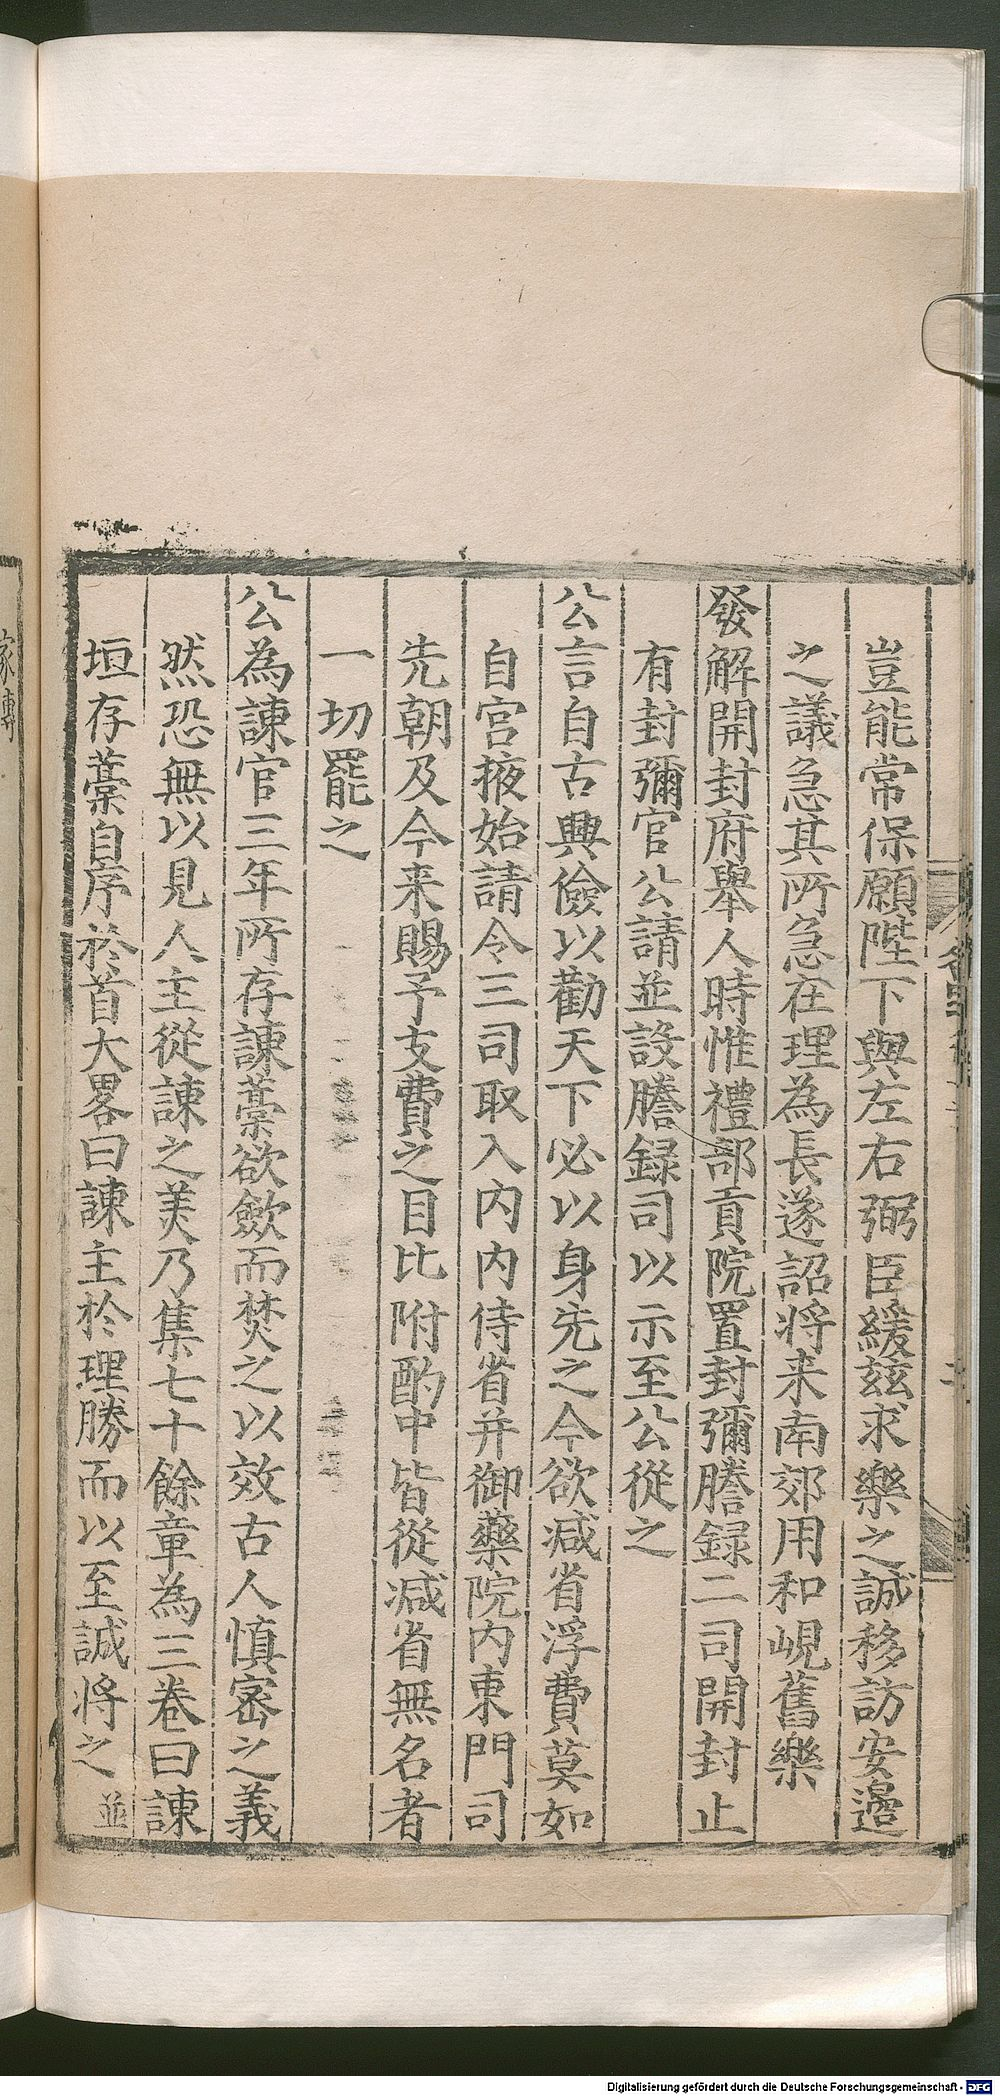 豈能常保願陛下與左右弼臣緩茲求樂之誠移訪安邊
之議急其所急在理為長遂詔將来南郊用和峴舊樂
發解開封府舉人時惟禮部貢院置封彌謄録二司開封止
有封彌官公請並設謄録司以示至公從之
公言自古興儉以勸天下必以身先之今欲减省浮費莫如
自宫掖始請令三司取入内内侍省并御藥院内東門司
先朝及今来賜予支費之目比附酌中皆從减省無名者
一切罷之
公為諫官三年所存諫藁欲歛而焚之以效古人慎宻之義
然恐無以見人主從諫之美乃集七十餘章為三卷曰諫
垣存藁自序於首大畧曰諫主於理勝而以至誠将之並
家傳
Digitalisierung gefördert durch die Deutsche Forschungsgemeinschaft - DFG